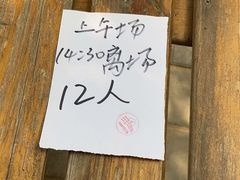 上午场
14:30离场
12人